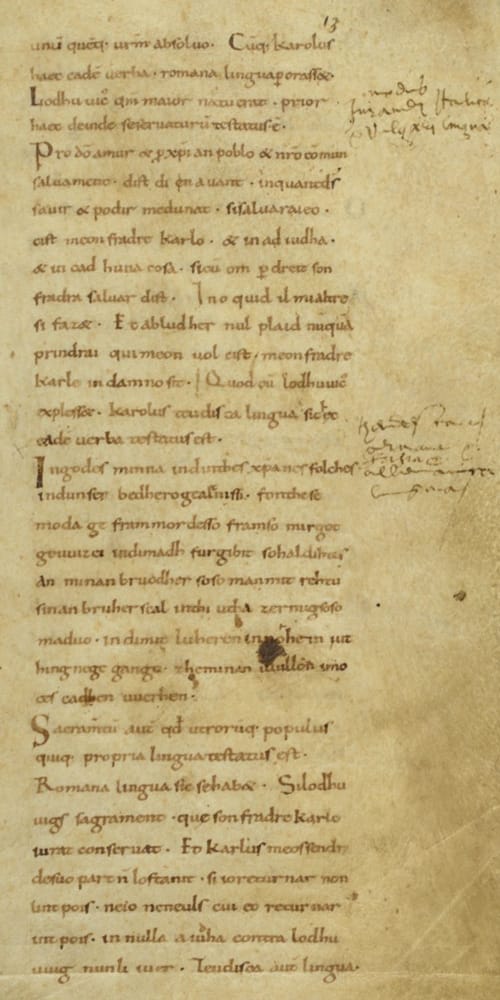 13
unū quēq; urm̄ absoluo. Cūq; karolus
haec eadē uerba. romana lingua perorasset.
Lodhuuic' qm̄ maior natu erat. prior
haec deinde se seruaturū testatus ē.
Pro dō amur & p xp̄ian poblo & nrō cōmun
saluament. dist di en auant. inquantds̄
sauir & podir medunat. sisaluaraieo.
cist meon fradre karlo. & in ad iudha.
& in cad huna cosa. sicū om p dreit son
fradra saluar dist. Ino quid il mi altre
si faz&. Et abludher nul plaid nūquā
prindrai qui meon uol cist. meonfradre
karle in damno sit. Quod cū lodhuuic'
explesset. karolus teudisca lingua sic ec̄
eadē uerba testatus est.
Ingodes minna indinthes xp̄anes folches
indunser bedhero gealtnissi. fonthese
moda ge frammordesso framso mirgot
geuuizci indimadh furgibit sohaldihtes
an minan bruodher soso manmit rehtu
sinan bruher scal inthi utha zermigsoso
maduo. indimit luheren innohein iut
hing nege gango. zheminan uuillon imo
ces cadhen uuerhen.
Sacramtū aut̄ qd̄ utrorūq; populus
quiq; propria lingua testatus est.
Romana lingua sic se hab&. Silodhu
uigs sagrament. que son fradre karlo
iurat conseruat. Et karlus meossendr
desuo part n̄ lostanit. si ioreturnar non
lint pois. neio neneuls cui eo returnar
int pois. in nulla aiuha contra lodhu
uuig nunli iuer. Teudisca aut̄ lingua.